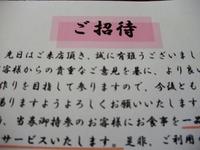 ご招待
先日はご来店頂き、誠に有難うございまし
客様からの貴重なご意見を基に、より良い
作りを目指して参りますので、今後とも
りますようよろしくお願いいたします
、当券御持参のお客様にお食事を一品
サービスいたします。是非、ご利用